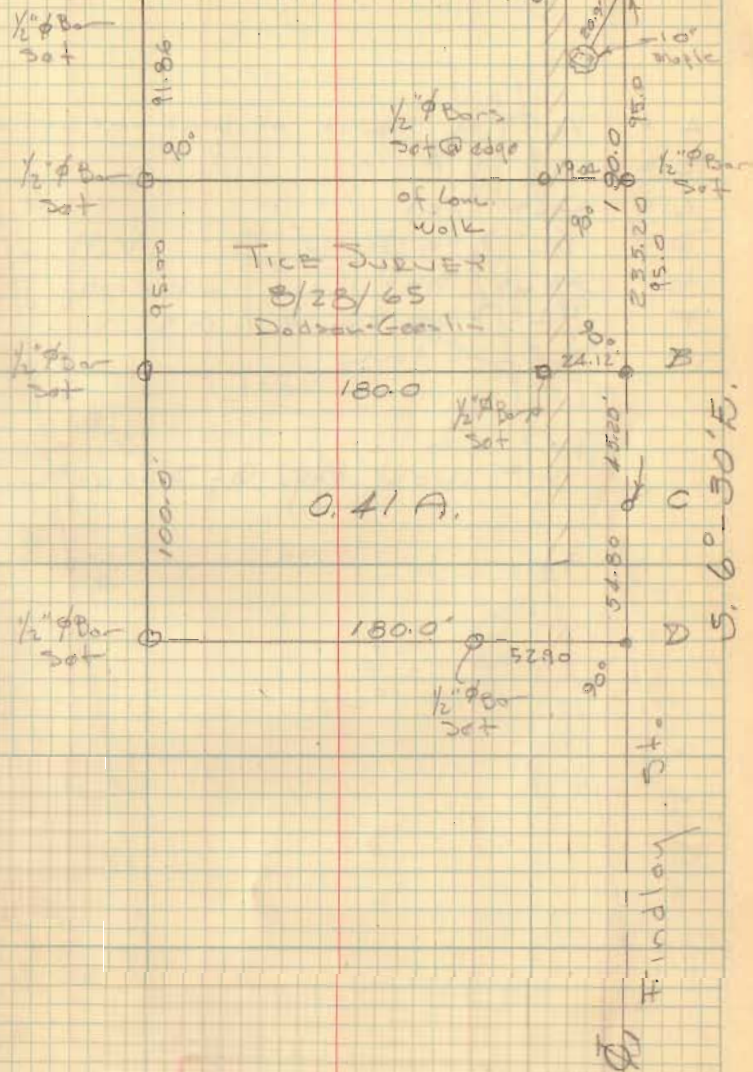 1/2" φ Bar
Set
91.86
20.9
10"
Maple
95.0
90°
1/2" φ Bars
Set @ edge
of Conc.
Walk
1/2" φ Bar
Set
19.02
190.0
1/2" φ Bar
Set
90°
235.20
95.0
95.00
TICE SURVEY
8/28/65
Dodson-Gosslin
90°
24.12'
B
1/2" φ Bar
Set
180.0
1/2" φ Bar
Set
45.20'
C
100.0'
0.41 A.
54.80
S. 6°-30'E.
1/2" φ Bar
Set
180.0'
52.90
D
1/2" φ Bar
Set
90°
Findlay St.